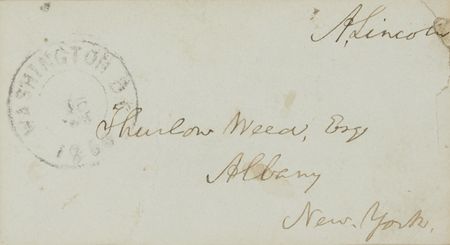 A. Lincoln
WASHINGTON D.C.
Thurlow Weed, Esq
Albany
New-York.